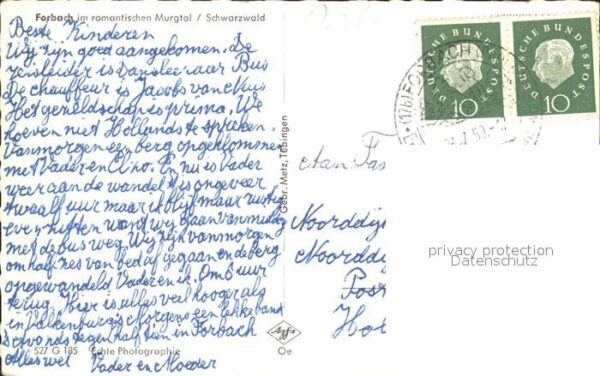 Forbach im romantischen Murgtal / Schwarzwald
Beste Kinderen
Wij zijn goed aangekomen. De
reisleider is van naar Bus
De chauffeur is Jacobs van Kuis
Het gezelschap is prima. We
hoeven niet Hollands te spreken.
Vanmorgen een berg opgeklommen
met Vader en Eno. En nu is Vader
weer aan de wandel t is ongeveer
twaalf uur maar ik blijf maar rustig
even zitten want wij gaan vanmiddag
met de bus weg. Wij zijn vanmorgen
om half zes van bed af gegaan en de berg
opgewandeld Vader en ik. Om 8 uur
terug. Hier is alles veel hooger als
in Valkenburg. 's Morgens een lekker bad
's avonds tegen half tien in Forbach
Alles wel Vader en Moeder
527 G 185 Echte Photographie
Gebr. Metz, Tübingen
Agfa
Oe
DEUTSCHE BUNDESPOST
10
DEUTSCHE BUNDESPOST
10
FORBACH
Aan Fa
Noorddij
Noordd
Post
Ho
privacy protection
Datenschutz